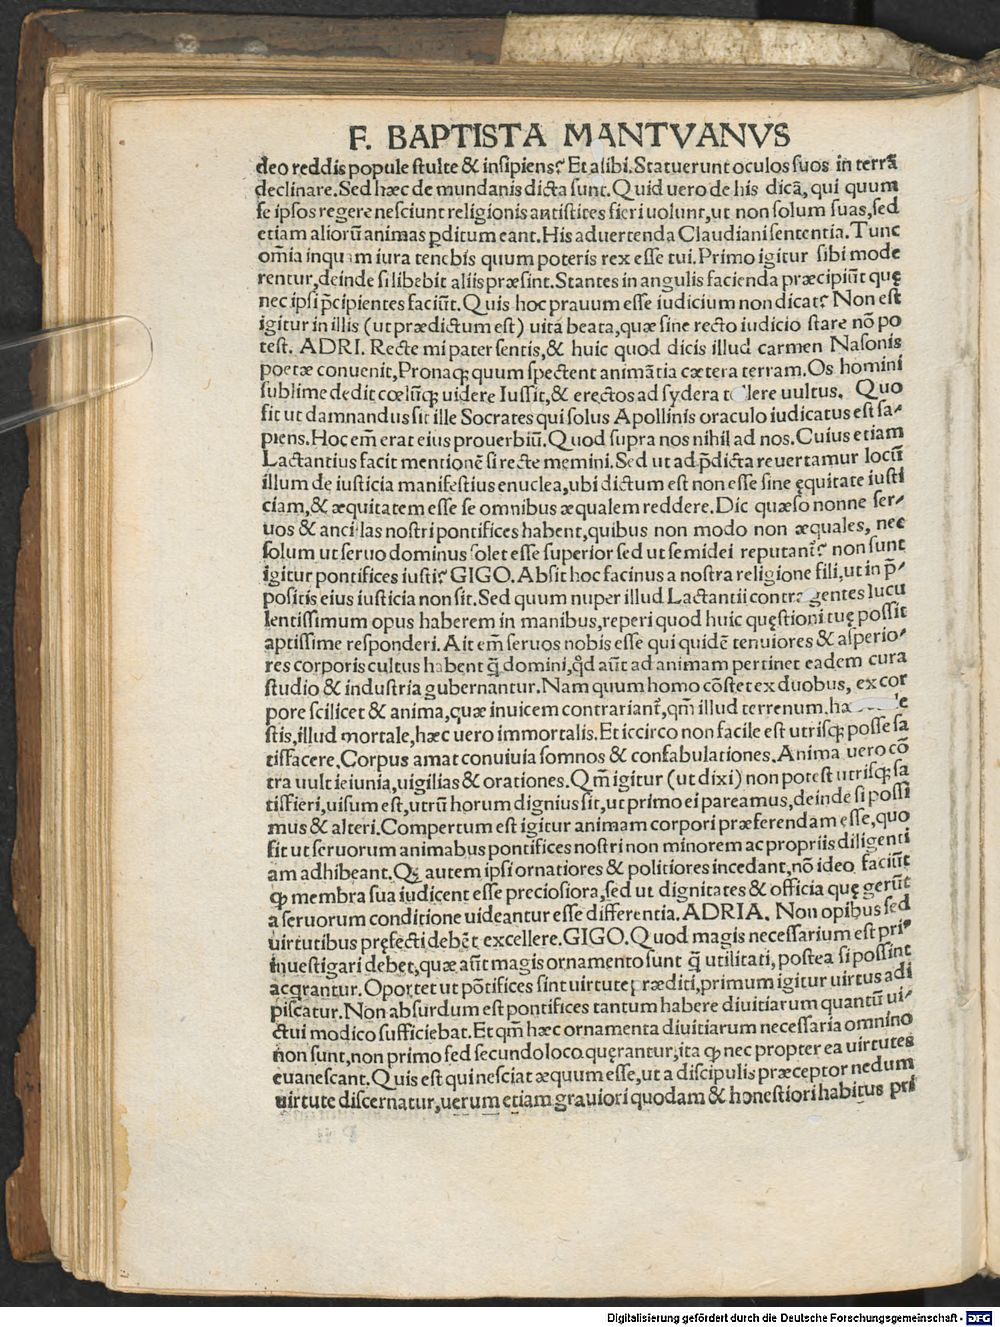 F. BAPTISTA MANTVANVS
deo reddis popule stulte & insipiens? Et alibi. Statuerunt oculos suos in terrā
declinare. Sed hæc de mundanis dicta sunt. Quid uero de his dicā, qui quum
se ipsos regere nesciunt religionis antistites fieri uolunt, ut non solum suas, sed
etiam aliorū animas ꝑditum eant. His aduertenda Claudiani sententia. Tunc
om̄ia inquam iura tenebis quum poteris rex esse tui. Primo igitur sibi mode
rentur, deinde si libebit aliis præsint. Stantes in angulis facienda præcipiūt quę
nec ipsi p̄cipientes faciūt. Quis hoc prauum esse iudicium non dicat? Non est
igitur in illis (ut prædictum est) uita beata, quæ sine recto iudicio stare nō po
test. ADRI. Recte mi pater sentis, & huic quod dicis illud carmen Nasonis
poetæ conuenit, Pronaqꝫ quum spectent animātia cætera terram. Os homini
sublime dedit cœlūqꝫ uidere Iussit, & erectos ad sydera tollere uultus. Quo
fit ut damnandus sit ille Socrates qui solus Apollinis oraculo iudicatus est sa-
piens. Hoc em̄ erat eius prouerbiū. Quod supra nos nihil ad nos. Cuius etiam
Lactantius facit mentionē si recte memini. Sed ut ad p̄dicta reuertamur locū
illum de iusticia manifestius enuclea, ubi dictum est non esse sine ęquitate iusti
ciam, & æquitatem esse se omnibus æqualem reddere. Dic quæso nonne ser-
uos & ancillas nostri pontifices habent, quibus non modo non æquales, nec
solum ut seruo dominus solet esse superior sed ut semidei reputant̄? non sunt
igitur pontifices iusti? GIGO. Absit hoc facinus a nostra religione fili, ut in p̄-
positis eius iusticia non sit. Sed quum nuper illud Lactantii contra gentes lucu
lentissimum opus haberem in manibus, reperi quod huic quęstioni tuę possit
aptissime responderi. Ait em̄ seruos nobis esse qui quidē tenuiores & asperio-
res corporis cultus habent q̄ domini, qd̄ aūt ad animam pertinet eadem cura
studio & industria gubernantur. Nam quum homo cōstet ex duobus, ex cor
pore scilicet & anima, quæ inuicem contrariant̄, qm̄ illud terrenum, 
stis, illud mortale, hæc uero immortalis. Et iccirco non facile est utrisqꝫ posse sa
tisfacere. Corpus amat conuiuia somnos & confabulationes. Anima uero cō
tra uult ieiunia, uigilias & orationes. Qm̄ igitur (ut dixi) non potest utrisqꝫ sa
tisfieri, uisum est, utrū horum dignius sit, ut primo ei pareamus, deinde si possi
mus & alteri. Compertum est igitur animam corpori præferendam esse, quo
fit ut seruorum animabus pontifices nostri non minorem ac propriis diligenti
am adhibeant. Qꝫ autem ipsi ornatiores & politiores incedant, nō ideo faciūt
ꝙ membra sua iudicent esse preciosiora, sed ut dignitates & officia quę gerūt
a seruorum conditione uideantur esse differentia. ADRIA. Non opibus sed
uirtutibus pręfecti debēt excellere. GIGO. Quod magis necessarium est pri-
inuestigari debet, quæ aūt magis ornamento sunt q̄ utilitati, postea si possint
acqrantur. Oportet ut pōtifices sint uirtute præditi, primum igitur uirtus adi
piscatur. Non absurdum est pontifices tantum habere diuitiarum quantū ui-
ctui modico sufficiebat. Et qm̄ hæc ornamenta diuitiarum necessaria omnino
non sunt, non primo sed secundo loco quęrantur, ita ꝙ nec propter ea uirtutes
euanescant. Quis est qui nesciat æquum esse, ut a discipulis præceptor nedum
uirtute discernatur, uerum etiam grauiori quodam & honestiori habitus pri
Digitalisierung gefördert durch die Deutsche Forschungsgemeinschaft - DFG